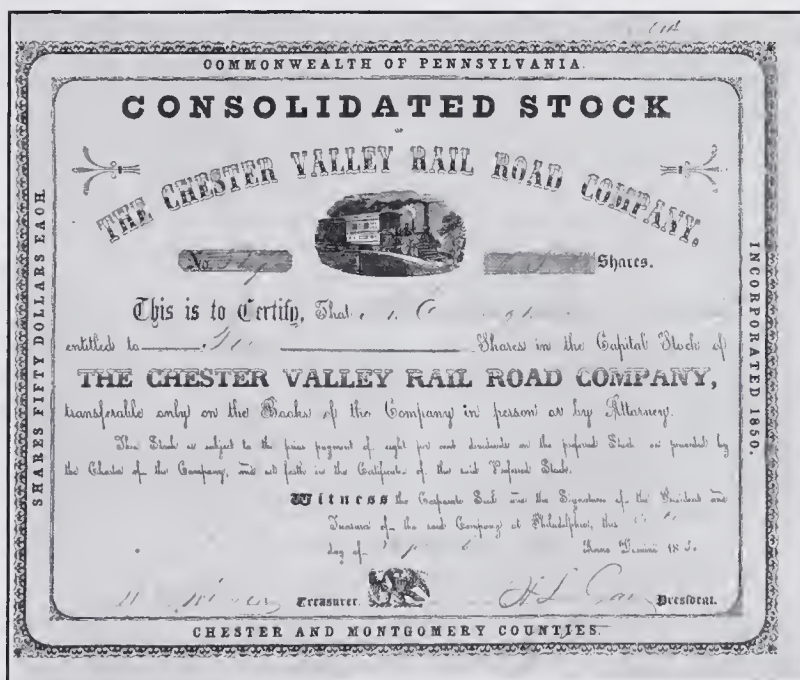 COMMONWEALTH OF PENNSYLVANIA.
CONSOLIDATED STOCK
OF
THE CHESTER VALLEY RAIL ROAD COMPANY.
No.
Shares.
This is to Certify, That
entitled to Shares in the Capital Stock of
THE CHESTER VALLEY RAIL ROAD COMPANY,
transferable only on the Books of the Company in person or by Attorney.
This Stock is subject to the prior payment of eight per cent dividends on the preferred Stock as provided by
the Charter of the Company, and set forth in the Certificate of the said Preferred Stock.
Witness the Corporate Seal and the Signatures of the President and
Treasurer of the said Company at Philadelphia, this
day of Anno Domini 185
Treasurer. President.
CHESTER AND MONTGOMERY COUNTIES.
SHARES FIFTY DOLLARS EACH.
INCORPORATED 1850.